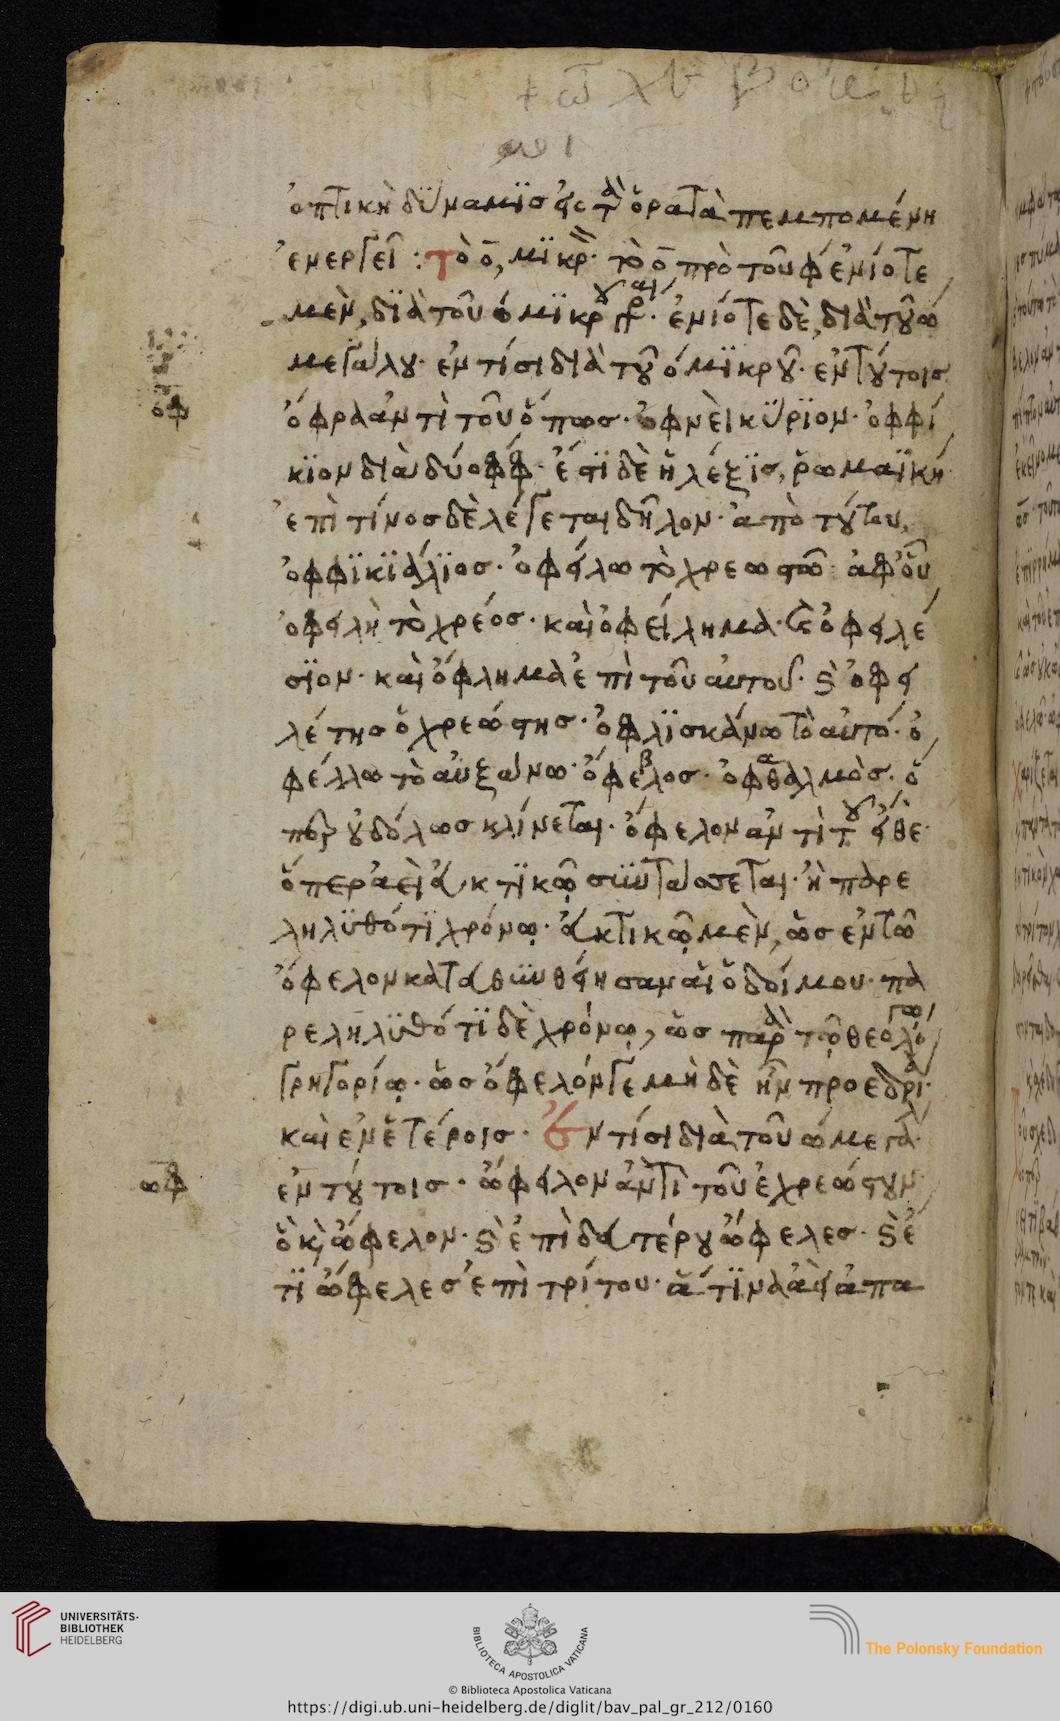 ὀπτικὴ δύναμις εἰς τὰ ὁρατὰ πεμπομένη
ἐνεργεῖ: Τὸ ο, μικρὸν· τὸ ο πρὸ τοῦ φ ἐνίοτε
μὲν, διὰ τοῦ ο μικροῦ γράφεται· ἐνίοτε δὲ, διὰ τοῦ ω
μεγάλου· ἐν τίσι διὰ τοῦ ο μικροῦ· ἐν τούτοις
οφ
ὄφρα ἀντὶ τοῦ ὅπως· ὀφνὲι κύριον· ὀφφί
κιον διὰ δύο φφ· ἔστι δὲ ἡ λέξις, ῥωμαϊκή·
ἐπὶ τίνος δὲ λέγεται δῆλον· ἀπὸ τούτου,
ὀφφικιάλιος· ὀφείλω τὸ χρεωστῶ· ἀφ' οὗ
ὀφειλὴ τὸ χρέος· καὶ ὀφείλημα· καὶ ὀφειλέ
σιον· καὶ ὄφλημα ἐπὶ τοῦ αὐτοῦ· καὶ ὀφει
λέτης ὁ χρεώστης· ὀφλισκάνω τὸ αὐτό· ὀ
φέλλω τὸ αὐξάνω· ὄφελος· ὀφθαλμὸς· ὅ
περ οὐδόλως κλίνεται· ὄφελον ἀντὶ τοῦ εἴθε·
ὅπερ ἀεὶ εὐκτικῷ συντάσσεται· ἢ παρε
ληλυθότι χρόνῳ· εὐκτικῷ μὲν, ὡς ἐν τῷ
ὄφελον κατευθυνθείησαν αἱ ὁδοί μου· πα
ρεληλυθότι δὲ χρόνῳ, ὡς παρὰ τῷ θεολόγῳ
γρηγορίῳ· ὡς ὄφελόν γε μὴ δὲ ἦν προεδρία·
καὶ ἐν ἑτέροις· Ἐν τίσι διὰ τοῦ ω μεγάλ·
ωφ
ἐν τούτοις· ὤφειλον ἀντὶ τοῦ ἐχρεώστουν
ὃ καὶ ὤφελον· καὶ ἐπὶ δευτέρου ὤφελες· καὶ ἐ
τι ὤφελες ἐπὶ τρίτου·
UNIVERSITÄTS-
BIBLIOTHEK
HEIDELBERG
BIBLIOTECA APOSTOLICA VATICANA
The Polonsky Foundation
© Biblioteca Apostolica Vaticana
https://digi.ub.uni-heidelberg.de/diglit/bav_pal_gr_212/0160